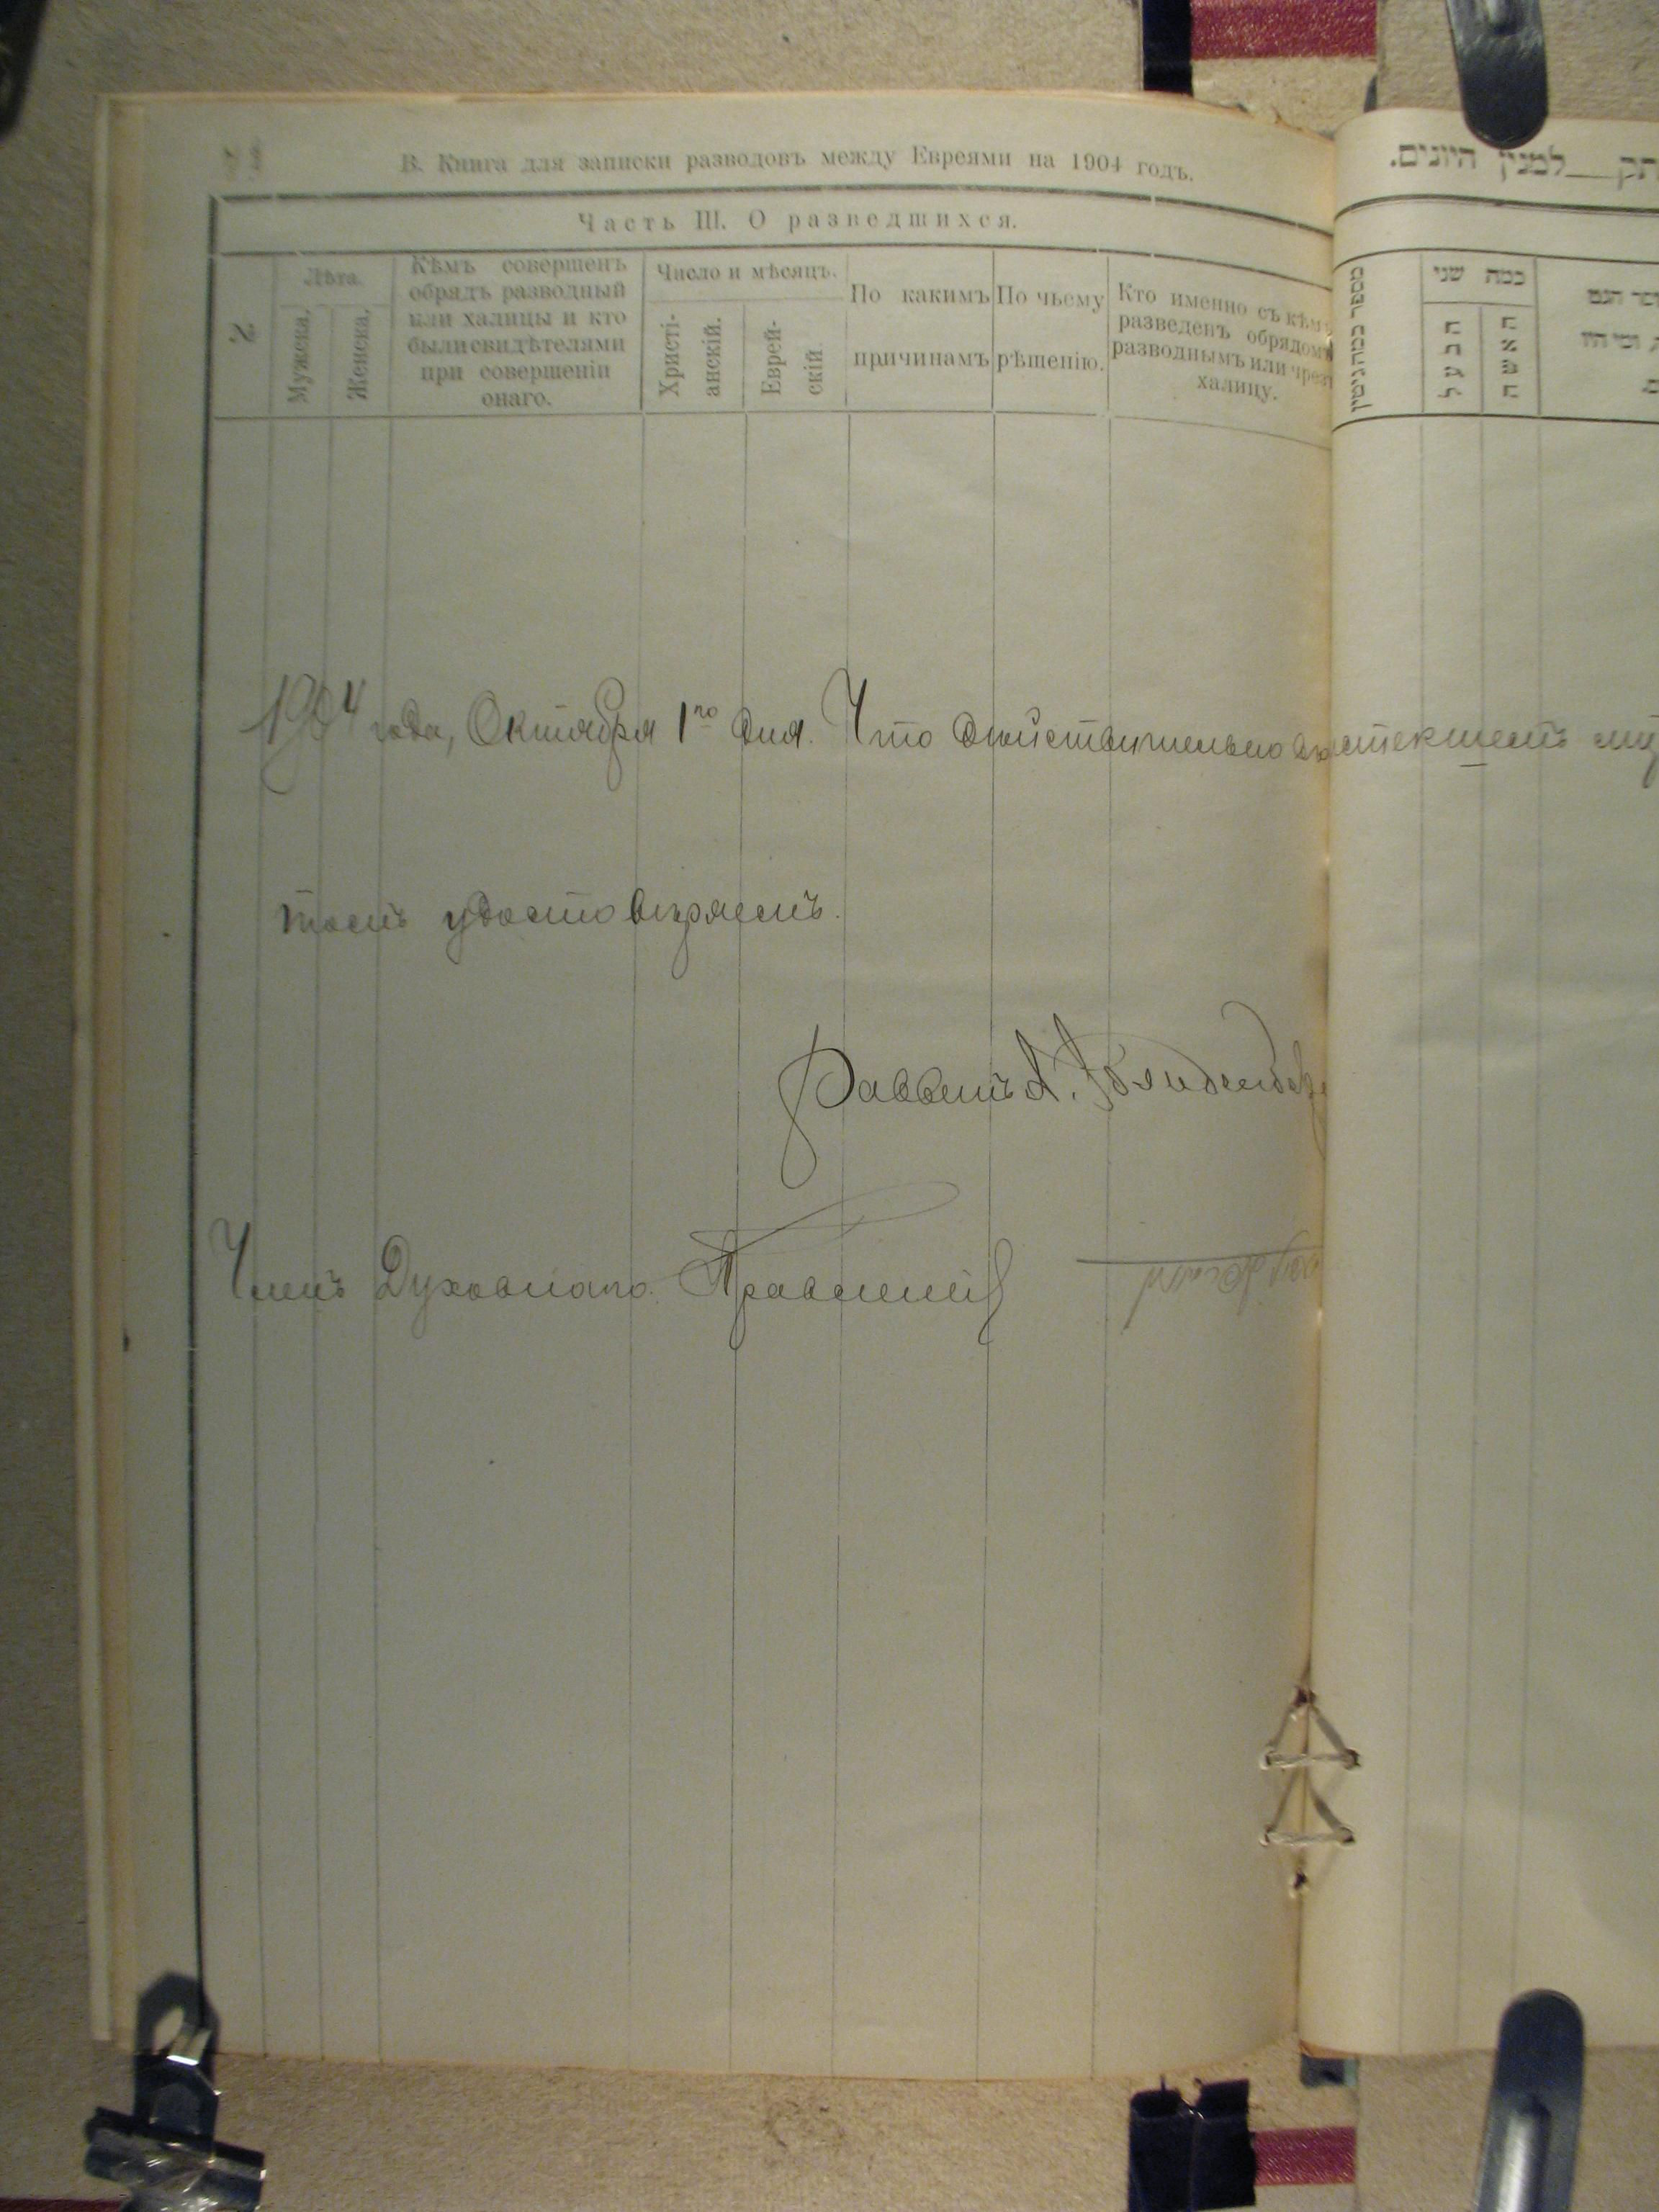 В. Книга для записки разводовъ между Евреями на 1904 годъ.
Часть III. О разведшихся.
№
Лѣта.
Мужска.
Женска.
Кѣмъ совершенъ
обрядъ разводный
или халицы и кто
были свидѣтелями
при совершеніи
онаго.
Число и мѣсяцъ.
Христі-
анскій.
Еврей-
скій.
По какимъ
причинамъ
По чьему
рѣшенію.
Кто именно съ кѣмъ
разведенъ обрядомъ
разводнымъ или чрезъ
халицу.
1904 года, Октября 1го дня. Что дѣйствительно въ истекшемъ
томъ удостовѣряемъ.
Раввинъ А.
Членъ Духовнаго Правленія
למנין היונים.
כמה שני
הבעל
האשה